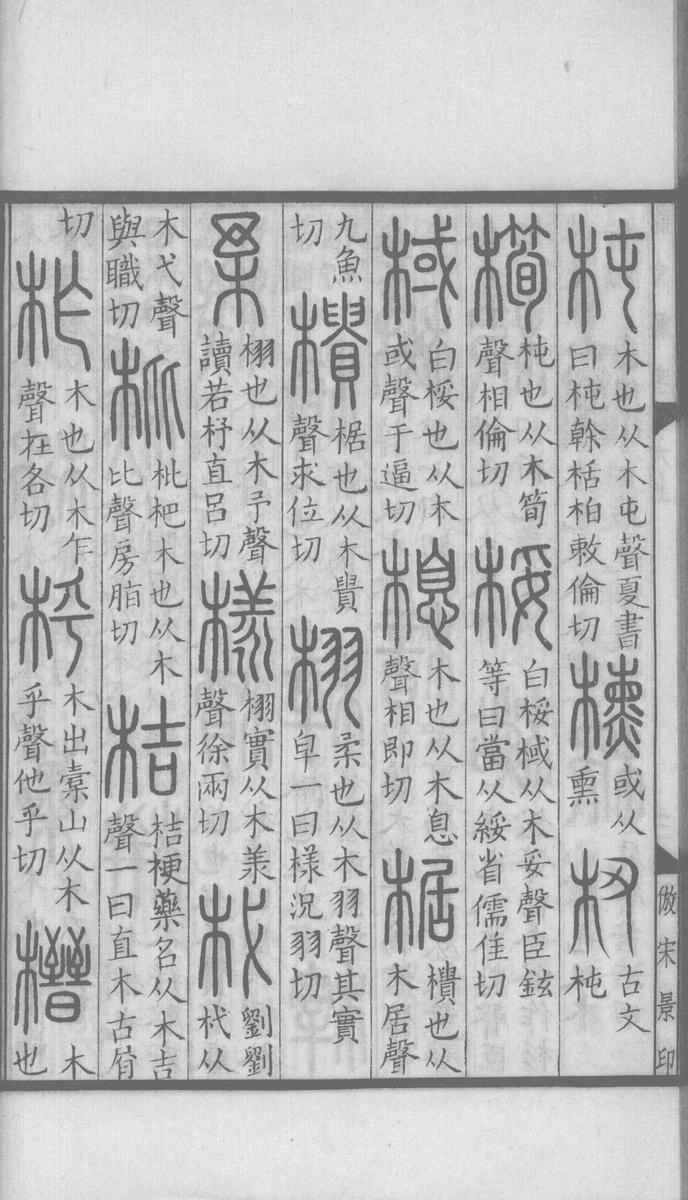 杶木也从木屯聲夏書曰杶榦栝柏敕倫切櫄或从熏杻古文杶
橁杶也从木筍聲相倫切桵白桵棫从木妥聲臣鉉等曰當从綏省儒隹切
棫白桵也从木或聲于逼切㮩木也从木息聲相即切椐樻也从木居聲
九魚切樻椐也从木貴聲求位切栩柔也从木羽聲其實皁一曰樣況羽切
柔栩也从木予聲讀若杼直呂切樣栩實从木羕聲徐兩切杙劉劉杙从
木弋聲與職切枇枇杷木也从木比聲房脂切桔桔梗藥名从木吉聲一曰直木古屑
切柞木也从木乍聲在各切枰木出橐山从木乎聲他乎切榗木也
倣宋景印